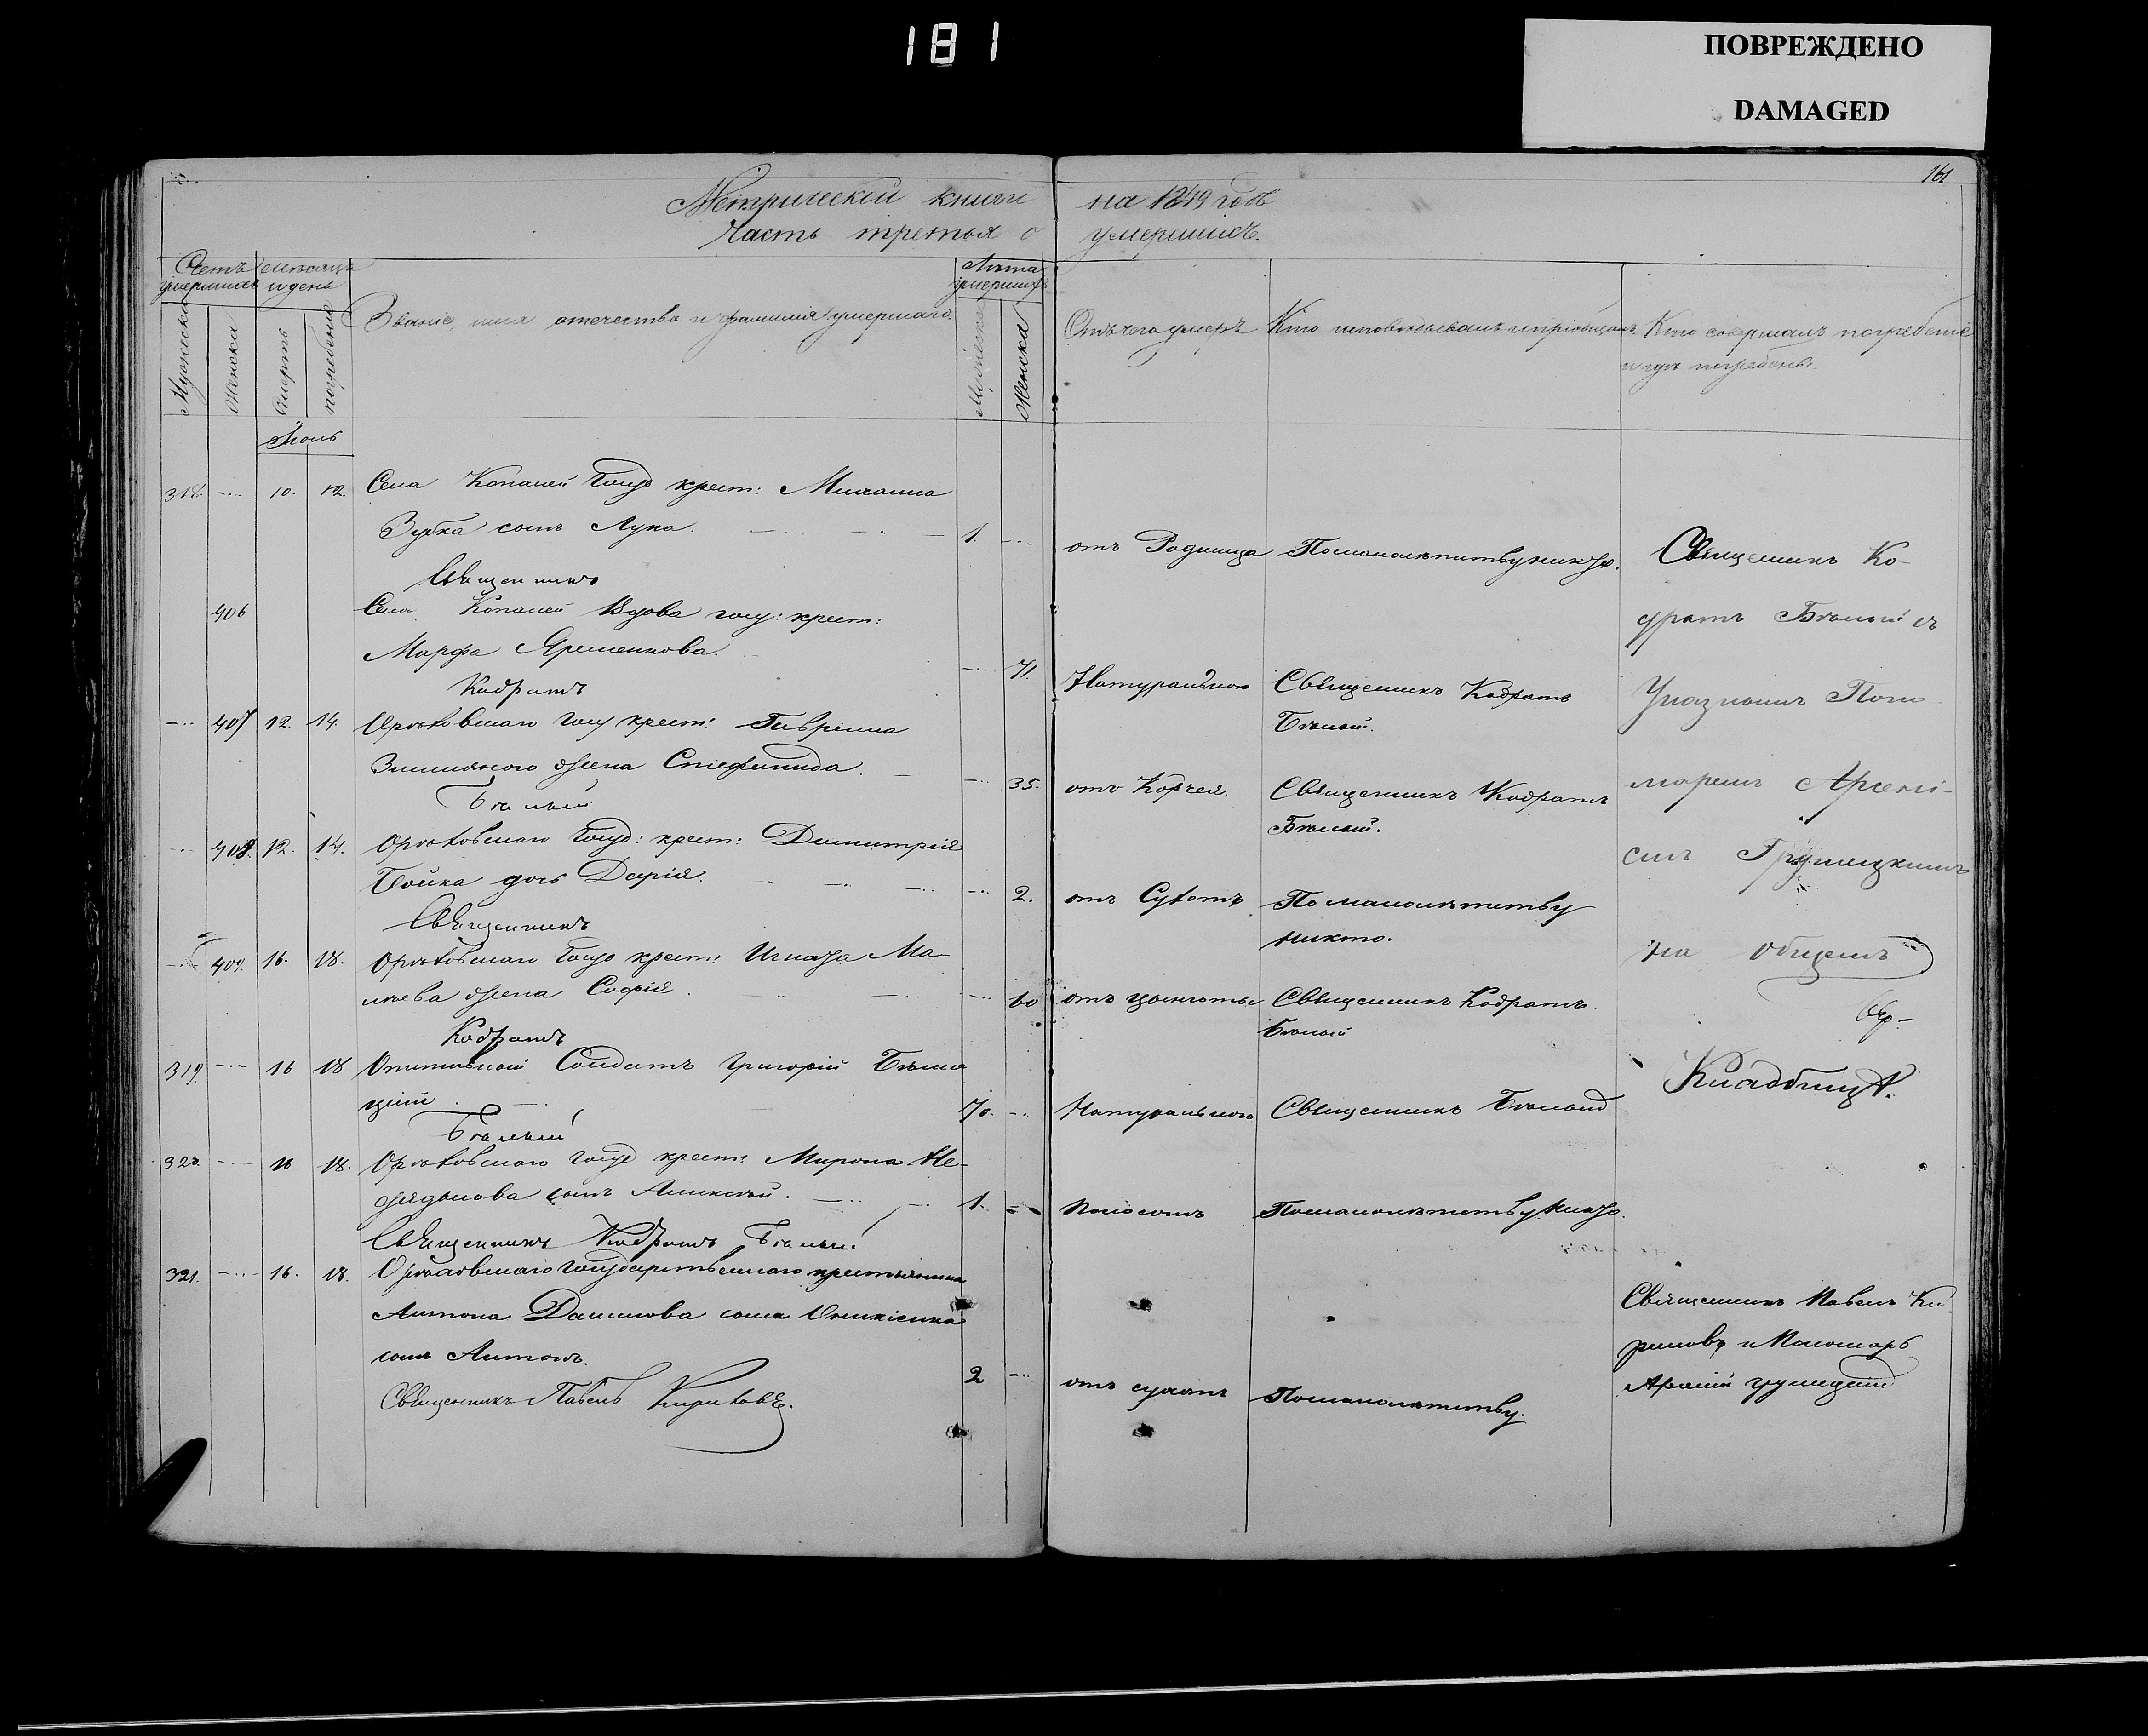 181
ПОВРЕЖДЕНО
DAMAGED
161
Метрической книги на 1849 годъ
Часть третья о умершихъ.
Счетъ умершихъ
Мужеска
Женска
месяцъ и день
Смерть
погребение
Званіе, имя отечество и фамилія умершаго.
Лѣта умершихъ
Мужеска
Женска
Отъ чего умеръ
Кто исповѣдывалъ и пріобщалъ.
Кто совершалъ погребеніе
и гдѣ погребены.
Іюль
318. 10. 12. Села Копаней Госуд крест: Михаила
Зубка сынъ Лука. 1. отъ Родимца По малолѣтству никто.
Священникъ
406 Села Копаней Вдова госу: крест:
Марфа Яременкова. 71. Натуральною Священникъ Кодратъ
Бѣлый.
Кодратъ
407 12. 14. Орѣховскаго госу крест: Гавріила
жена Стефанида. 35. отъ Корчея. Священникъ Кодратъ
Бѣлый.
Бѣлый
408. 12. 14. Орѣховскаго Госуд: крест: Димитрія
Бойка дочь Дарія. 2. отъ Сухотъ По малолѣтству
никто.
Священникъ
409. 16. 18. Орѣховскаго Госуд крест: Игната Ма-
лѣева жена Софія. 60 отъ цынготы Священникъ Кодратъ
Бѣлый
Кодратъ
319. 16 18 Отставной Солдатъ Григорій
70. Натурального Священникъ Бѣлый
Бѣлый
320. 16 18. Орѣховскаго госуд крест: Мирона Не-
сынъ Алексѣй. 1. Поносомъ По малолѣтству никто.
Священникъ Кодратъ Бѣлый
321. 16. 18. Орѣховскаго Государственнаго крестьянина
Антона Данилова сына
сынъ Антонъ. 2 отъ сухотъ По малолѣтству.
Священникъ Павелъ Кириловъ.
Священникъ Ко-
дратъ Бѣлый съ
Указнымъ Поно
маремъ Арсені-
емъ Грушецкимъ
на общемъ
Кладбищѣ.
Священникъ Павелъ Ки
риловъ и Пономарь
Арсеній Грушецкій